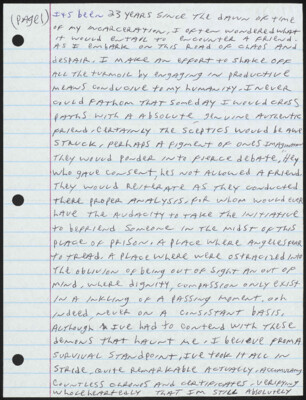 (page 1)
It's been 23 years since the dawn of time
of my incarceration, I often wondered what
it would entail to encounter a friend.
As I embark on this road of chaos and
despair. I make an effort to shake off
all the turmoil by engaging in productive
means conducive to my humanity. I never
could fathom that someday I would cross
paths with a absolute, genuine authentic
friend. Certainly the sceptics would be awe
struck, perhaps a figment of ones imagination
They would ponder into fierce debate, Hey
who gave consent, hes not allowed a friend
They would reiterate as they conducted
there proper analysis. For whom would ever
have the audacity to take the initiative
to befriend someone in the midst of this
place of prison. A place where angels fear
to tread. A place where were ostracized into
the oblivion of being out of sight an out of
mind, where dignity, compassion only exist
in a inkling of a passing moment, ooh
indeed, never on a consistant basis.
Although I've had to contend with these
demons that haunt me. I believe from a
survival standpoint, I've took it all in
stride, quite remarkable actually, accumulating
countless chronos and certificates, verifying
wholeheartedly that I'm still absolutely